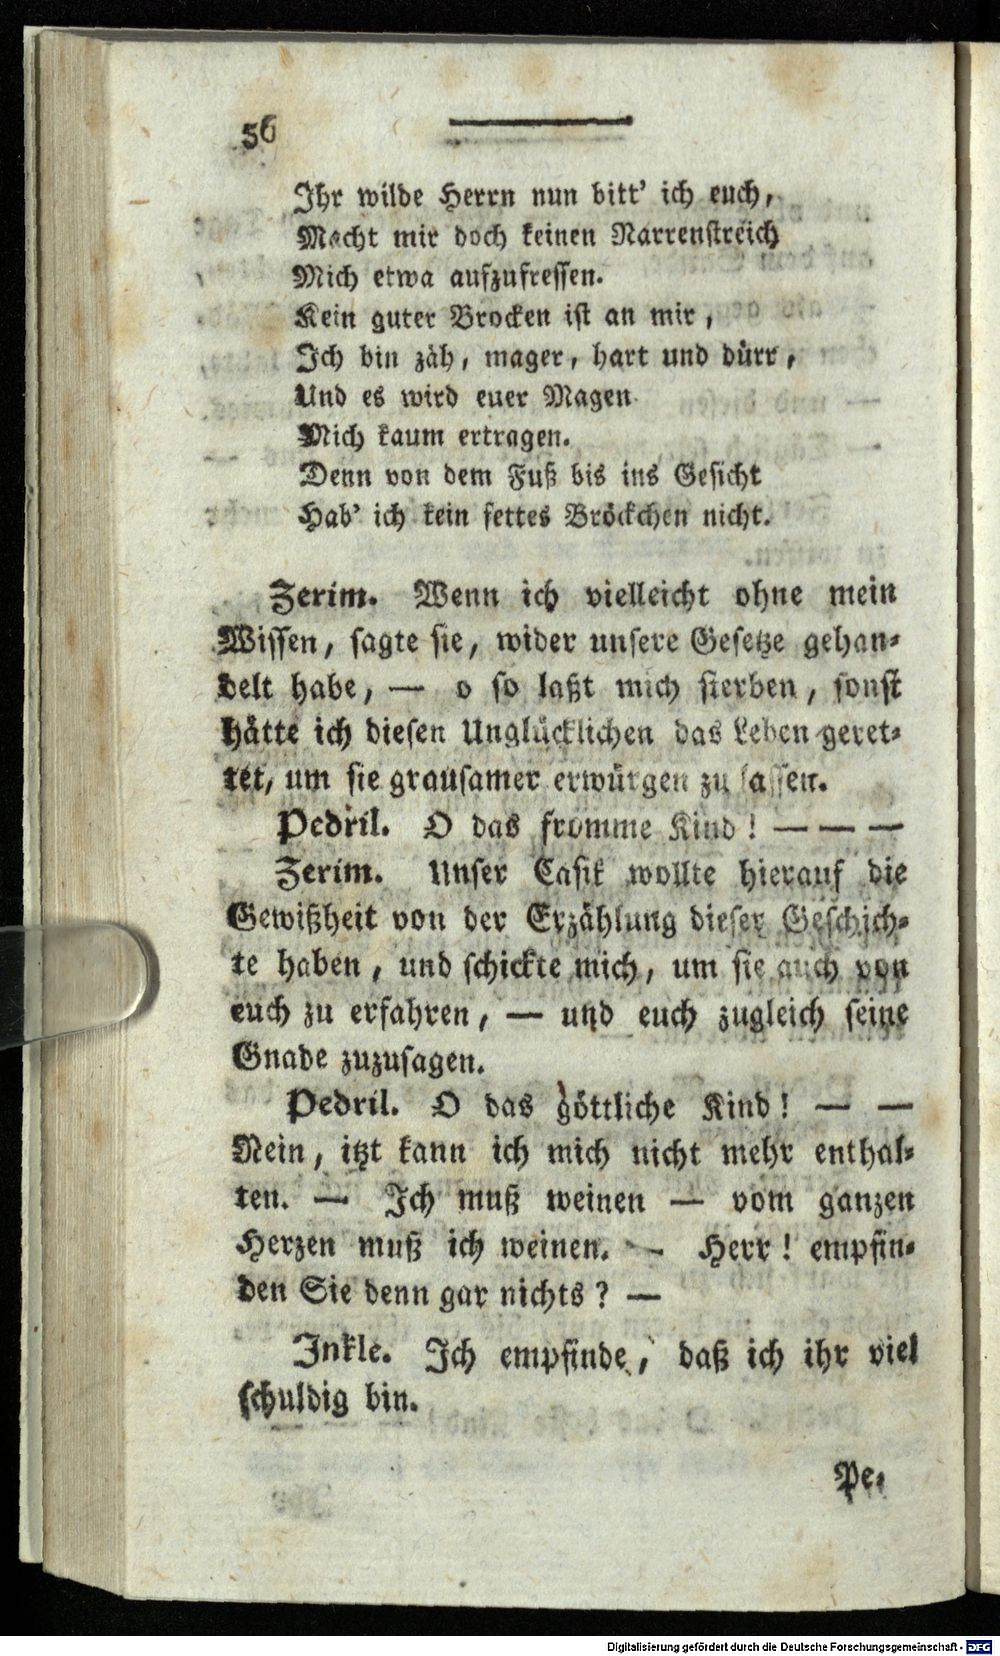 56
Ihr wilde Herrn nun bitt' ich euch,
Macht mir doch keinen Narrenstreich
Mich etwa aufzufressen.
Kein guter Brocken ist an mir,
Ich bin zäh, mager, hart und dürr,
Und es wird euer Magen
Mich kaum ertragen.
Denn von dem Fuß bis ins Gesicht
Hab' ich kein fettes Bröckchen nicht.
Zerim. Wenn ich vielleicht ohne mein
Wissen, sagte sie, wider unsere Gesetze gehan-
delt habe, — o so laßt mich sterben, sonst
hätte ich diesen Unglücklichen das Leben geret-
tet, um sie grausamer erwürgen zu lassen.
Pedril. O das fromme Kind! — — —
Zerim. Unser Casik wollte hierauf die
Gewißheit von der Erzählung dieser Geschich-
te haben, und schickte mich, um sie auch von
euch zu erfahren, — und euch zugleich seine
Gnade zuzusagen.
Pedril. O das göttliche Kind! — —
Nein, itzt kann ich mich nicht mehr enthal-
ten. — Ich muß weinen — vom ganzen
Herzen muß ich weinen. — Herr! empfin-
den Sie denn gar nichts? —
Inkle. Ich empfinde, daß ich ihr viel
schuldig bin.
Pe-
Digitalisierung gefördert durch die Deutsche Forschungsgemeinschaft - DFG